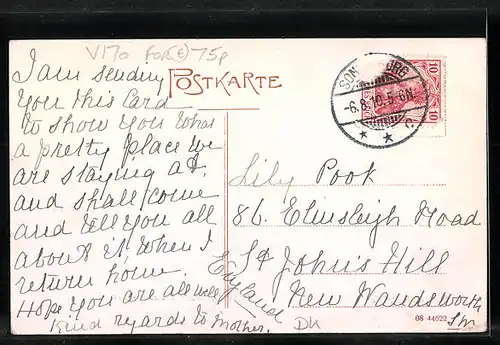 V170 FOR(E) 75p
POSTKARTE
I am sending
you this Card
to show you what
a pretty place we
are staying at.
and shall come
and tell you all
about it when I
return home.
Hope you are all well
Kind regards to Mother.
SON BURG
-6.8.10.5-6N.
* * C.
10 10
Lily Pook
86. Elmsleigh Road
St John's Hill
New Wandsworth
S.W.
England
DK
08 44522